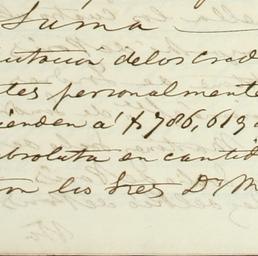 Suma
utacion delos cred
tes personalmente
ienden á $786,619
absoluta en cantid
on los Sres Dn M